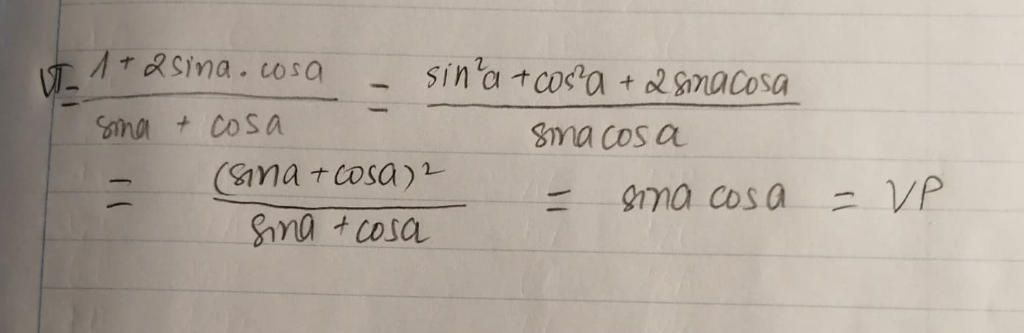 VT = 1 + 2sina . cosa / sina + cosa = sin²a + cos²a + 2sinacosa / sinacosa
= (sina + cosa)² / sina + cosa = sina cosa = VP